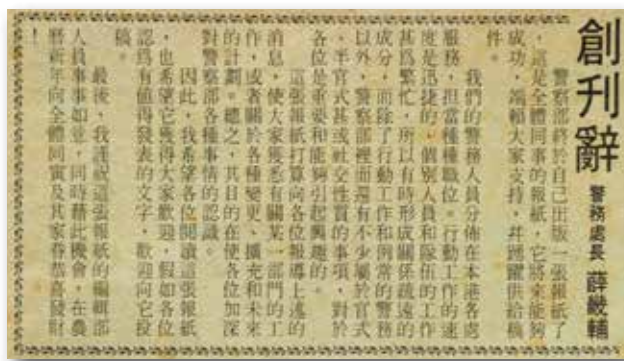 創刊辭
警務處長 薛畿輔
警察部終於自己出版一張報紙了
,這是全體同事的報紙,它將來能夠
成功,端賴大家支持,幷踴躍供給稿
件。
我們的警務人員分佈在本港各處
服務,担當種種職位。行動工作的速
度是迅捷的,個別人員和隊伍的工作
甚爲繁忙,所以有時形成關係疏遠的
成分,而除了行動工作和例常的警務
以外,警察部裡面還有不少屬於官式
、半官式甚或社交性質的事項,對於
各位是重要和能夠引起興趣的。
這張報紙打算向各位報導上述的
消息,使大家獲悉有關某一部門的工
作,或者關於各種變更、擴充和未來
的計劃。總之,其目的在使各位加深
對警察部各種事情的認識。
因此,我希望各位閱讀這張報紙
,也希望它獲得大家歡迎,假如各位
認爲有值得發表的文字,歡迎向它投
稿。
最後,我謹祝這張報紙的編輯部
人員事事如意,同時藉此機會,在農
曆新年向全體同寅及其家眷恭喜發財
!